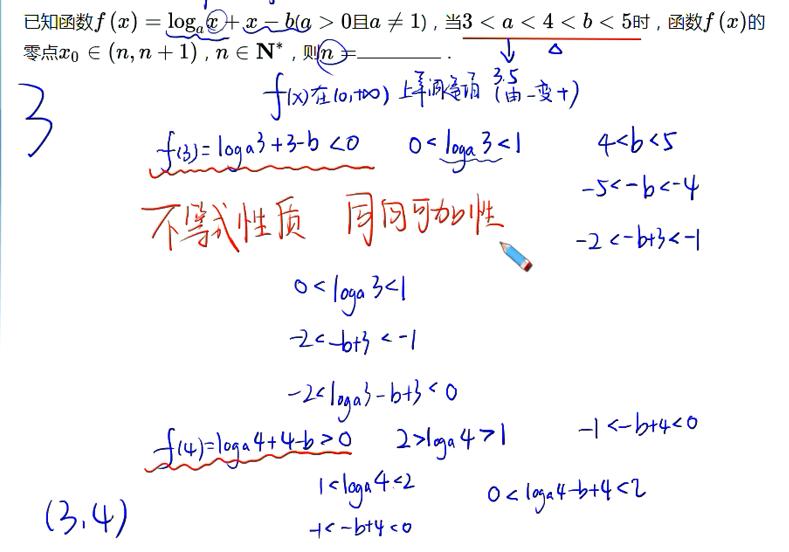 已知函数f(x)=logₐx+x−b(a>0且a≠1)，当3<a<4<b<5时，函数f(x)的
零点x₀∈(n,n+1)，n∈N*，则n=________.
3.5
3
f(x)在(0,+∞)上单调递增(由-变+)
f(3)=loga3+3-b<0 0<loga3<1 4<b<5
-5<-b<-4
不等式性质 同向可加性
-2<-b+3<-1
0<loga3<1
-2<-b+3<-1
-2<loga3-b+3<0
f(4)=loga4+4-b>0 2>loga4>1 -1<-b+4<0
1<loga4<2 0<loga4-b+4<2
(3,4) -1<-b+4<0